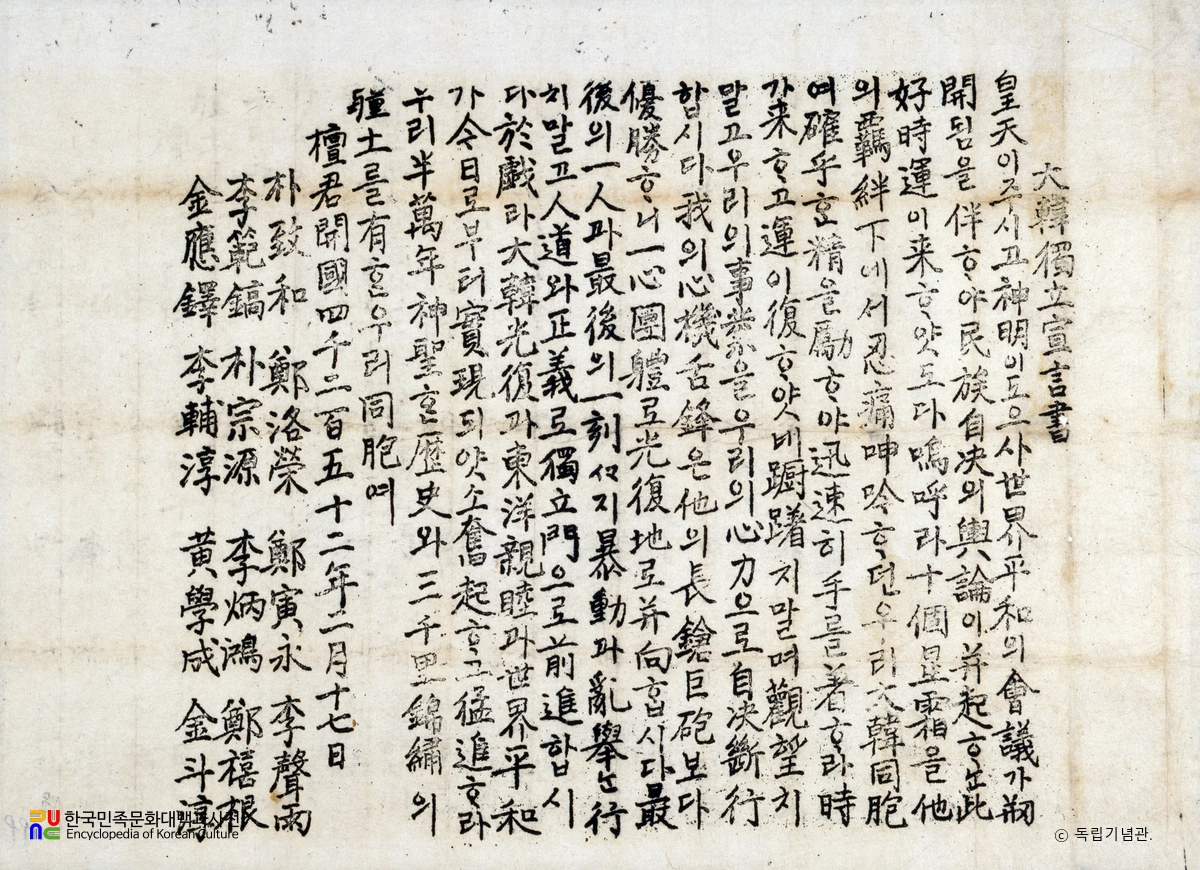 大韓獨立宣言書
皇天이주시고神明이도으사世界平和의會議가刱
開됨을伴ᄒᆞ야民族自决의輿論이并起ᄒᆞᄂᆞᆫ此
好時運이来ᄒᆞ얏도다嗚呼라十個星霜을他
의羈絆下에서忍痛呻吟ᄒᆞ던우리大韓同胞
여確乎ᄒᆞᆫ精을勵ᄒᆞ야迅速히手를著ᄒᆞ라時
가来ᄒᆞ고運이復ᄒᆞ얏네躕躇치말며觀望치
말고우리의事業을우리의心力으로自决斷行
합시다我의心機舌鋒은他의長鎗巨砲보다
優勝ᄒᆞ니一心團體로光復地로并向합시다最
後의一人과最後의一刻ᄭᆞ지暴動과亂擧ᄂᆞᆫ行
치말고人道와正義로獨立門으로前進합시
다於戲라大韓光復과東洋親睦과世界平和
가今日로부터實現되얏소奮起ᄒᆞ고猛進ᄒᆞ라
우리半萬年神聖ᄒᆞᆫ歷史와三千里錦繡의
疆土를有ᄒᆞᆫ우리同胞여
檀君開國四千二百五十二年二月十七日
朴致和 鄭洛榮 鄭寅永 李聲雨
李範鎬 朴宗源 李炳鴻 鄭禧根
金應鐸 李輔淳 黃學成 金斗淳
한국민족문화대백과사전
Encyclopedia of Korean Culture
ⓒ 독립기념관.